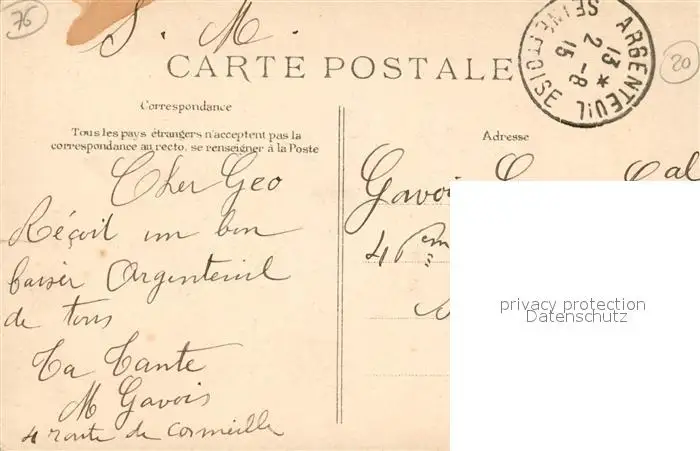 76
S. M.
CARTE POSTALE
ARGENTEUIL
13 *
2 - 8
15
SEINE ET OISE
20
Correspondance
Tous les pays étrangers n'acceptent pas la
correspondance au recto, se renseigner à la Poste
Adresse
Cher Geo
Réçoit un bon
baiser Argenteuil
de tous
Ta Tante
M Gavois
4 route de Cormeille
Gavoi
4 em
privacy protection
Datenschutz